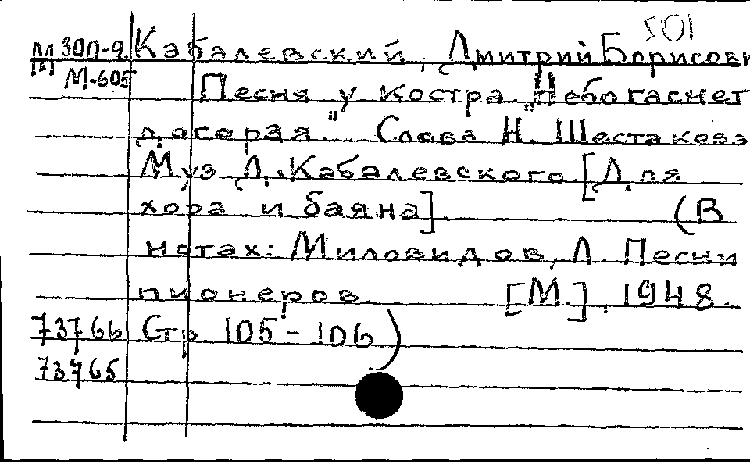 501
М 300-2 Кабалевский, Дмитрий Борисови
М-605 Песня у костра „Небо гаснет
догорая." Слова Н. Шестакова
Муз Д. Кабалевского [Для
хора и баяна] (В
нотах: Миловидов, Л. Песни
пионеров [М], 1948.
73766 Стр 105-106)
73765